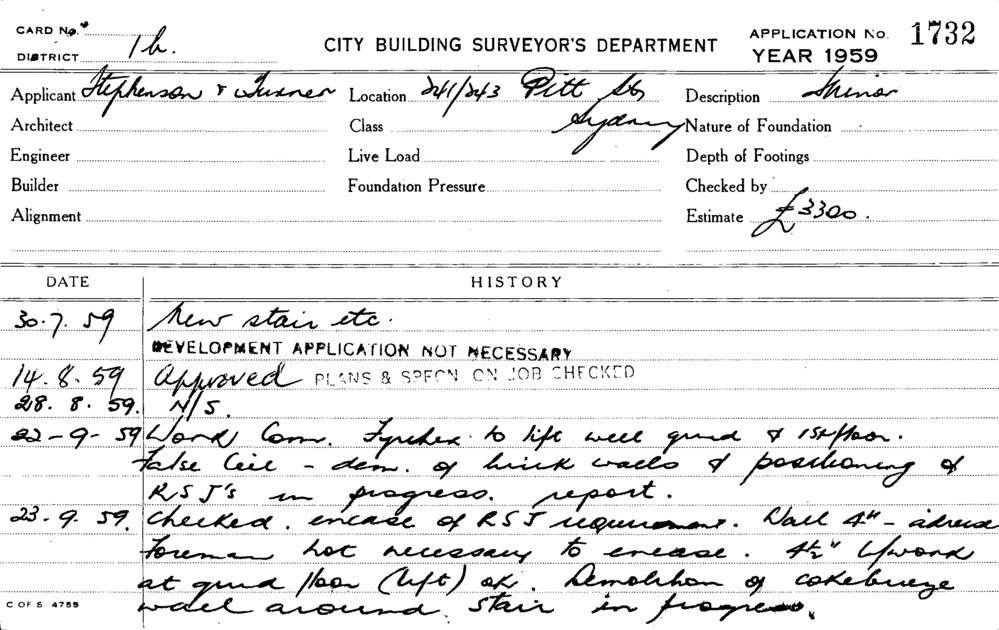 CARD No.
DISTRICT 1h.
CITY BUILDING SURVEYOR'S DEPARTMENT
APPLICATION No. 1732
YEAR 1959
Applicant Stephenson & Turner Location 241/243 Pitt St Description Minor
Architect Class Sydney Nature of Foundation
Engineer Live Load Depth of Footings
Builder Foundation Pressure Checked by
Alignment Estimate £3300.
DATE HISTORY
30.7.59 New stair etc.
DEVELOPMENT APPLICATION NOT NECESSARY
14.8.59 Approved PLANS & SPECN ON JOB CHECKED
28.8.59. N/S.
22-9-59 Work Com. to lift well grnd & 1st floor.
False Ceil - dem. of brick walls & positioning of
RSJ's in progress. report.
23.9.59. Checked. encase of RSJ requirement. Wall 4" - advise
Foreman not necessary to encase. 4½" b/work
at grnd floor (lift) ok. Demolition of cokebreeze
wall around stair in progress.
C OF S 4755